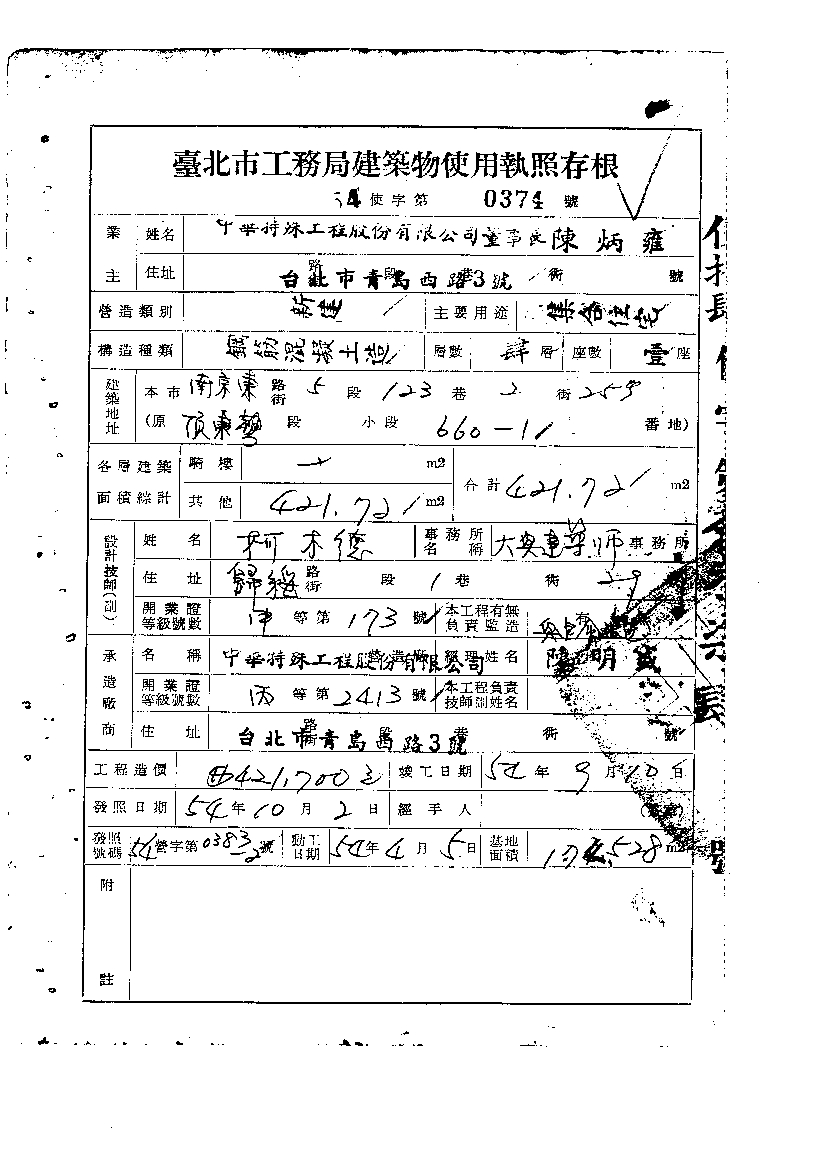 臺北市工務局建築物使用執照存根
54使字第 0374 號
業主 姓名 中華特殊工程股份有限公司董事長 陳炳雍
住址 台北市青島西路3號 路 段 巷 街 號
營造類別 新建 主要用途 集合住宅
構造種類 鋼筋混凝土造 層數 肆層 座數 壹座
建築地址 本市 南京東 路街 5 段 123 巷 2 街 259
(原 頂東勢 段 小段 660-1 番地)
各層建築面積綜計 騎樓 m2 合計 421.72 m2
其他 421.72 m2
設計技師(副) 姓名 柯木德 事務所名稱 大興建築師 事務所
住址 錦 路街 段 1 巷 街 29
開業證等級號數 甲 等第 173 號 本工程有無負責監造 有
承造廠商 名稱 中華特殊工程股份有限公司 營造廠 經理姓名 陳明
開業證等級號數 丙 等第 2413 號 本工程負責技師副姓名
住址 台北市青島西路3號 路街 段 巷 街 號
工程造價 421,700 竣工日期 54 年 9 月 10 日
發照日期 54 年 10 月 2 日 經手人
發照號碼 54 營字第 0383-2 號 動工日期 54 年 4 月 5 日 基地面積 528 m2
附註